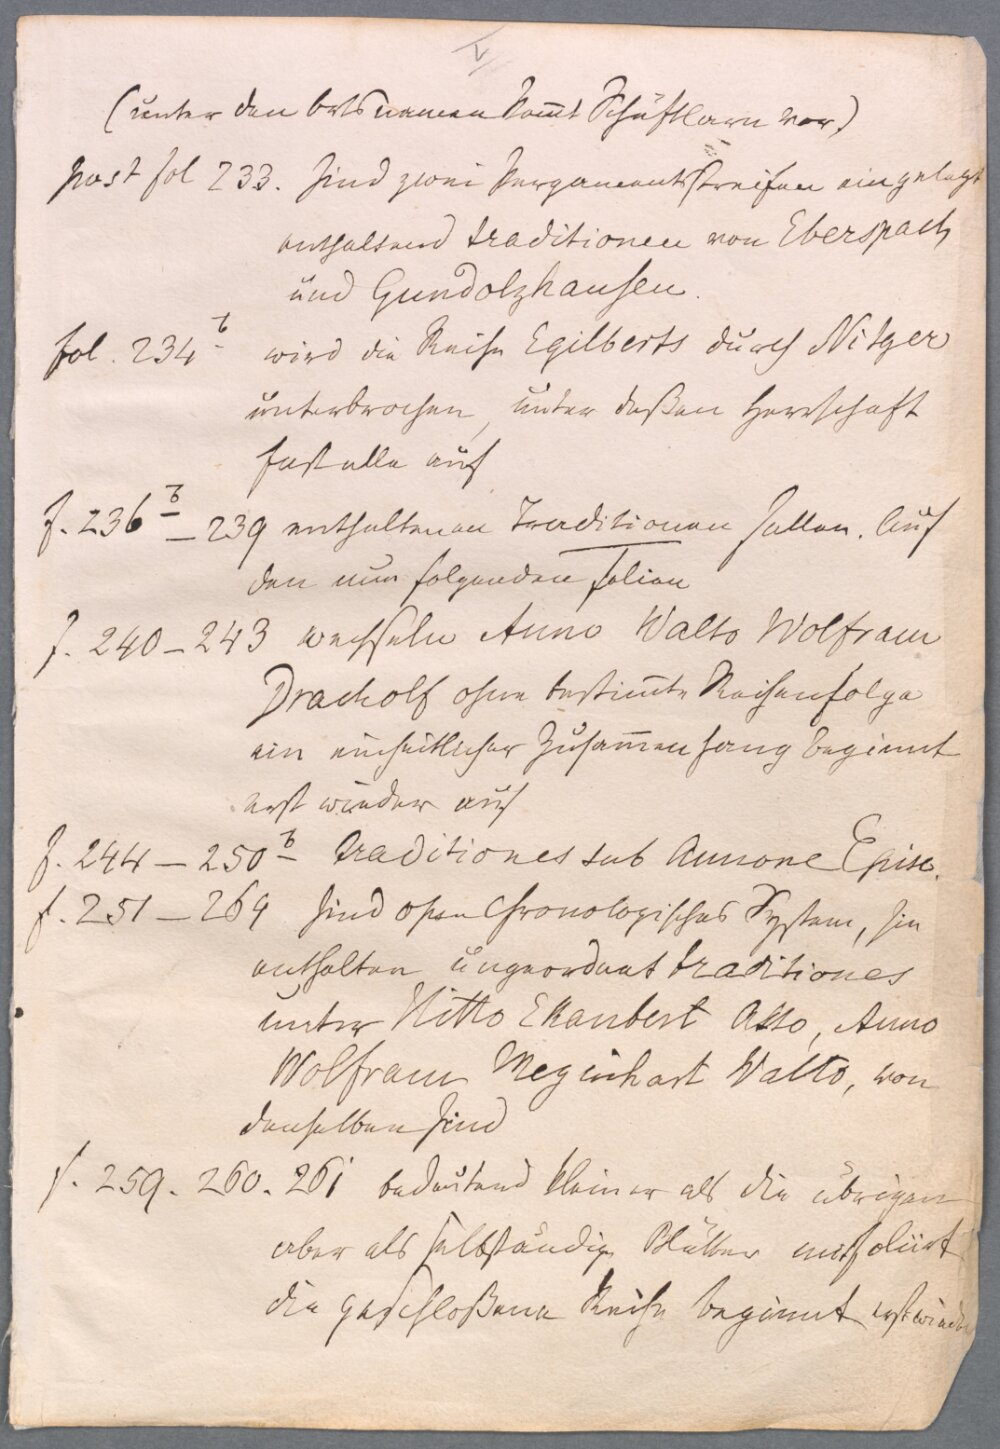 (unter den Ortsnamen kom̅t Schäftlarn vor)
post fol 233. sind zwei Pergamentstreifen eingelegt
enthaltend traditionen von Eberspach
und Gundolzhausen.
fol. 234 b wird die Reihe Egilberts durch Nitger
unterbrochen, unter deßen Herrschaft
fast alle auf
f. 236 b – 239 enthaltenen Traditionen fallen. Auf
den nun folgenden folien
f. 240 – 243 wechseln Anno Walto Wolfram
Dracholf ohne bestim̅te Reihenfolge
ein einheitlicher Zusam̅enhang beginnt
erst wieder auf
f. 244 – 250 b traditiones sub Annone Episc.
f. 251 – 269 sind ohne chronologisches System, sie
enthalten ungeordnet traditiones
unter Hitto Ekanbert Atto, Anno
Wolfram Meginhart Walto, von
denselben sind
f. 259. 260. 261 bedeutend kleiner als die übrigen
aber als selbständige Blätter mitfoliirt
die geschloßene Reihe beginnt erst wieder